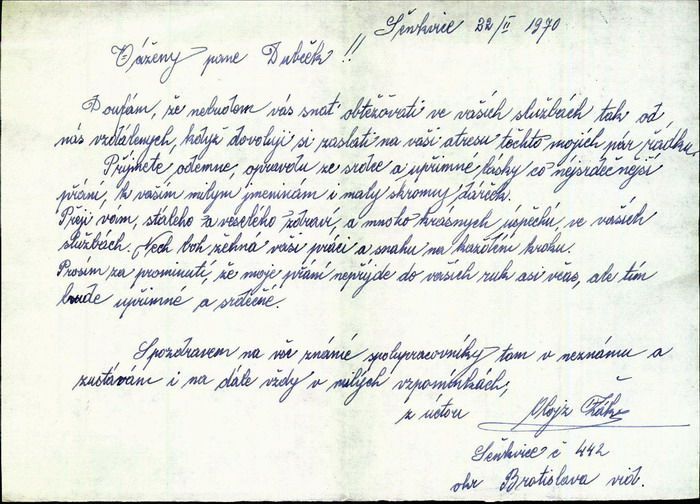 Šenkvice 22/II 1970
Vážený pane Dubček !!
Doufám, že nebudem vás snať obtěžovati ve vašich službach tak od
nás vzdálených, když dovoluji si zaslati na vaši atresu techto mojich pár řádku.
Přijmete odemne, opravdu ze srdce a upřimné lásky co nejsrdečnejši
přání, k vašim milym jmeninám i maly skromny dáreček.
Přeji vam, stáleho a veseleho zdravi, a mnoho krasnych úspěchů, ve vašich
službách. Nech boh žehna vaši práci a snahu na každém kroku.
Prosím za prominutí, že moje přání neprijde do vašich ruk asi včas, ale tim
bude upřimné a srdečné.
Spozdravem na vše známé spolupracovníky tam v neznámu a
zustávám i na dále vždy v milých vzpomínkách;
z úctou Alojz
Šenkvice č 442
okr Bratislava vid.